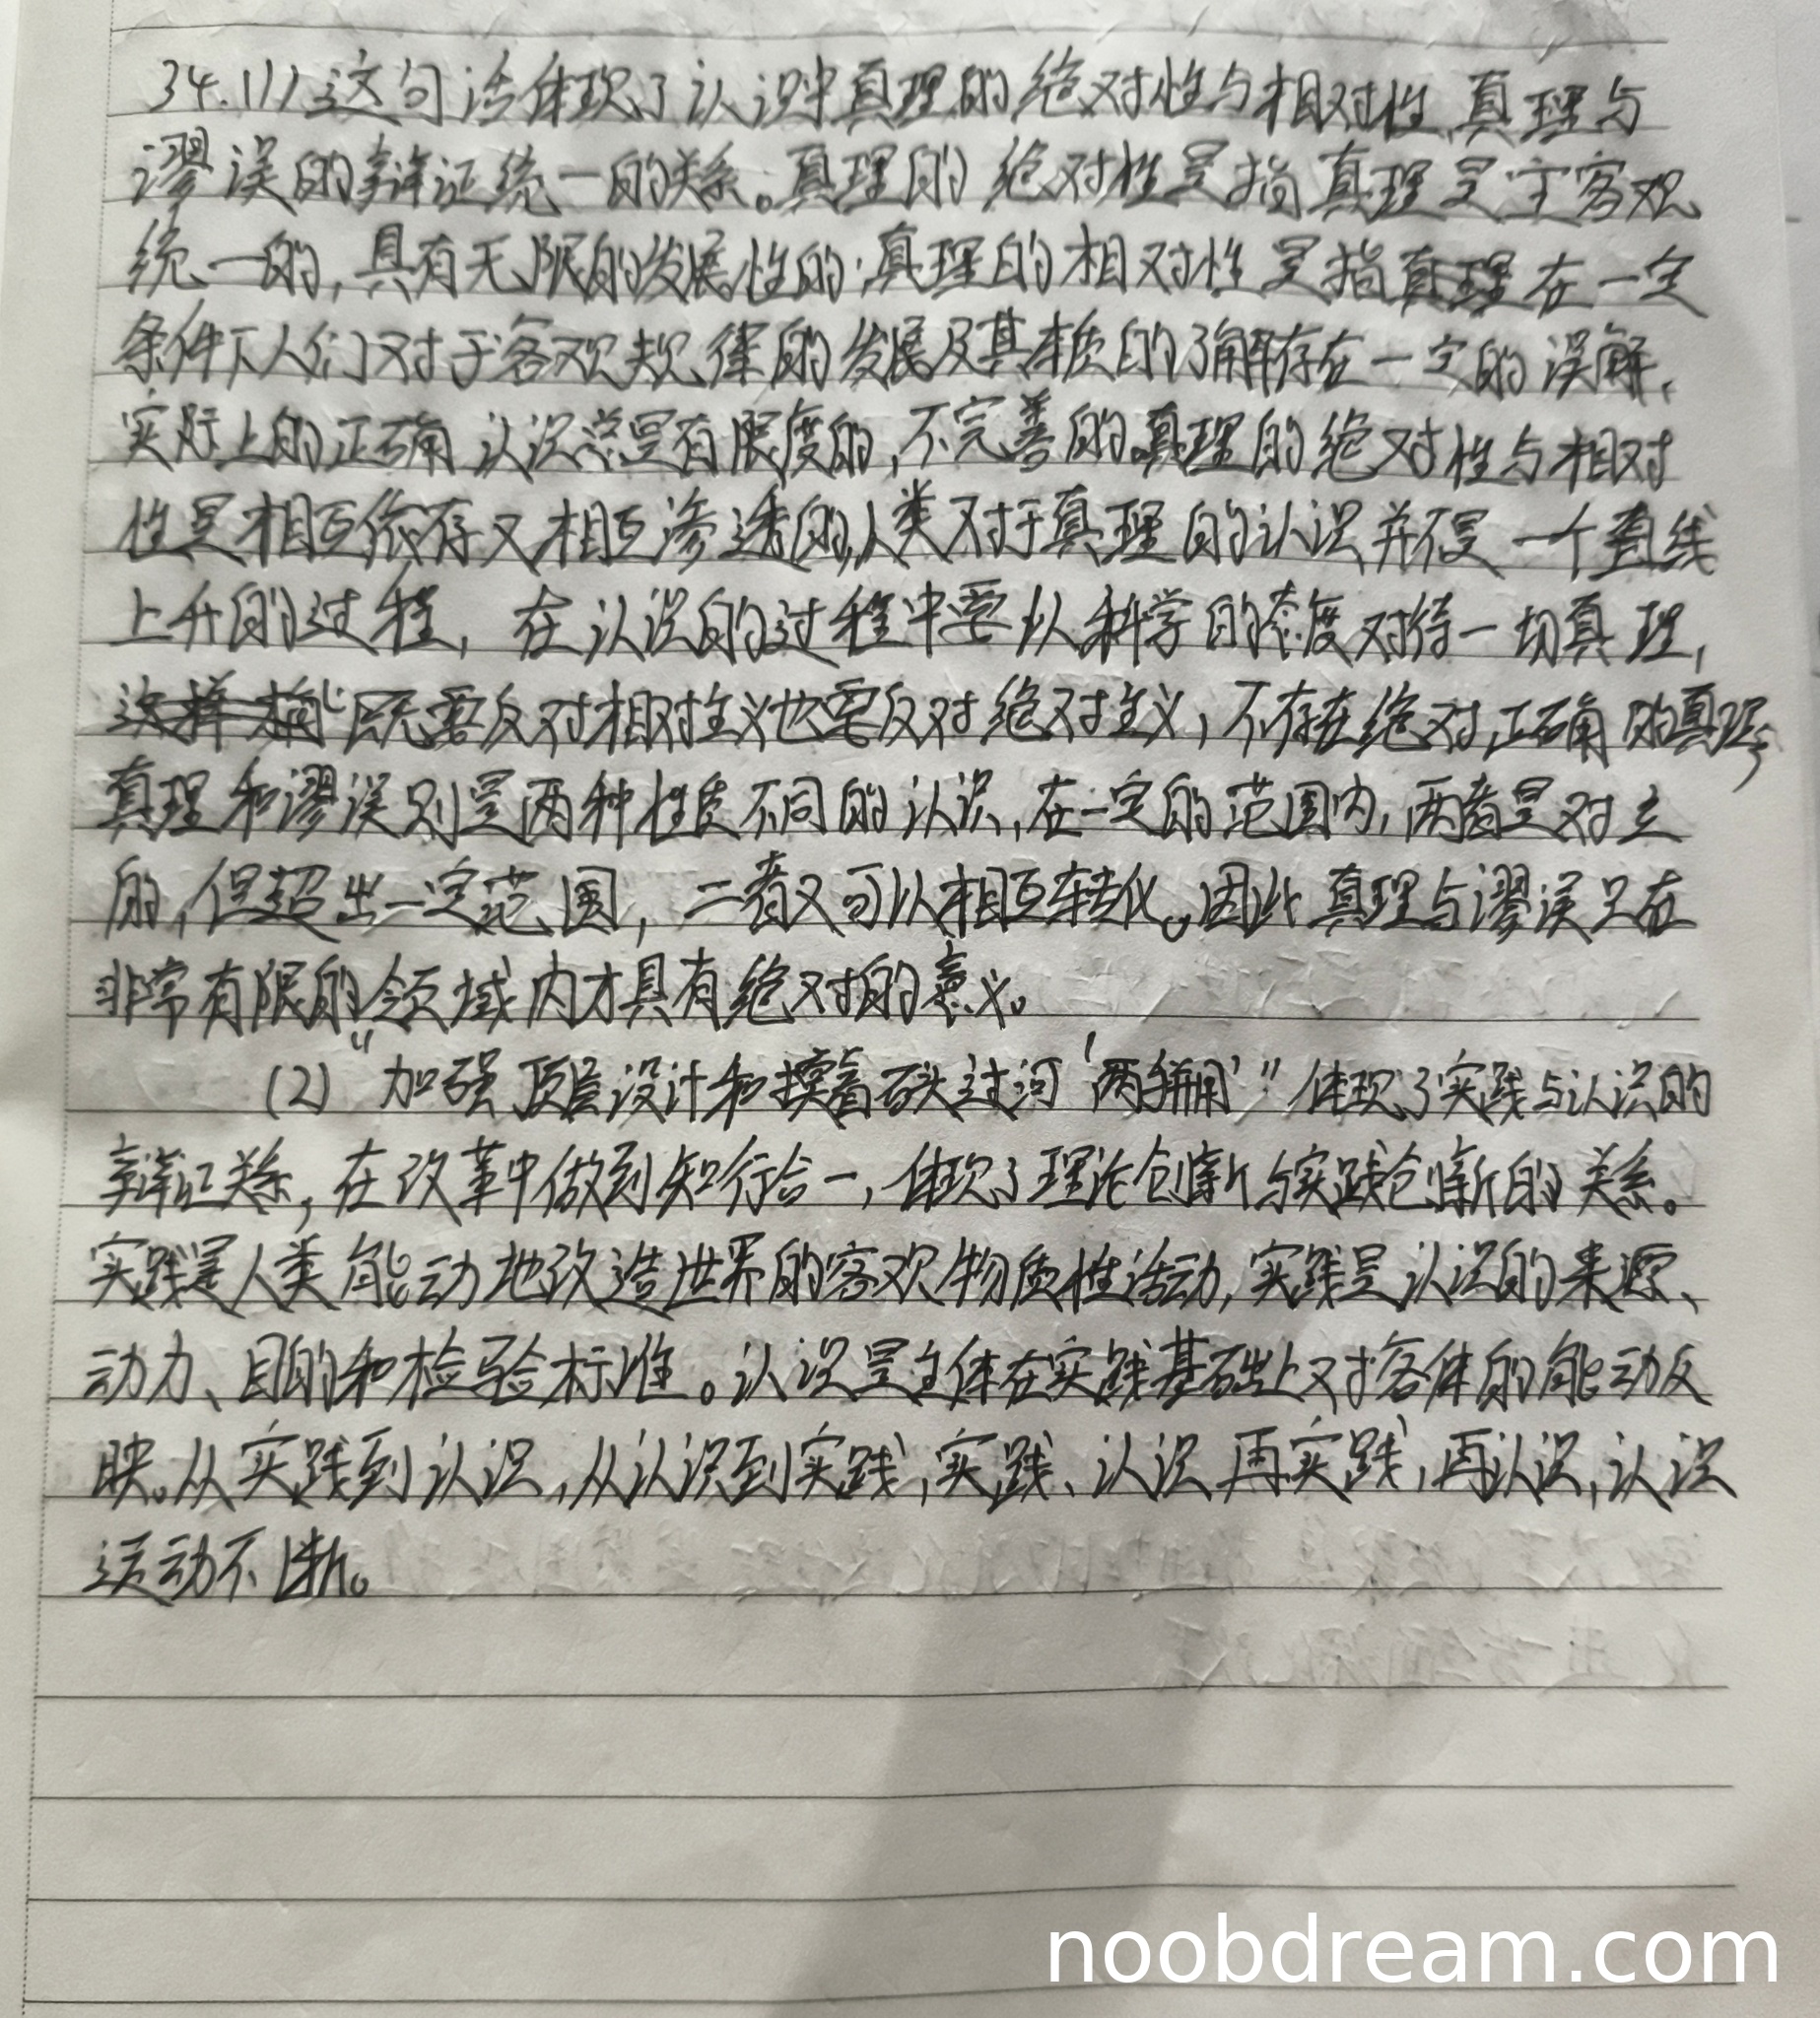 34.(1)这句话体现了认识中真理的绝对性与相对性、真理与
谬误的辩证统一的关系。真理的绝对性是指真理是主客观
统一的,具有无限的发展性的;真理的相对性是指真理在一定
条件下人们对于客观规律的发展及其本质的了解存在一定的误解,
实际上的正确认识总是有限度的,不完善的。真理的绝对性与相对
性是相互依存又相互渗透的,人类对于真理的认识并不是一个直线
上升的过程,在认识的过程中要以科学的态度对待一切真理,
既要反对相对主义也要反对绝对主义,不存在绝对正确的真理;
真理和谬误则是两种性质不同的认识,在一定的范围内,两者是对立
的,但超出一定范围,二者又可以相互转化。因此真理与谬误只在
非常有限的领域内才具有绝对的意义。
(2)“加强顶层设计和摸着石头过河‘两手用’”体现了实践与认识的
辩证关系,在改革中做到知行合一,体现了理论创新与实践创新的关系。
实践是人类能动地改造世界的客观物质性活动,实践是认识的来源、
动力、目的和检验标准。认识是主体在实践基础上对客体的能动反
映。从实践到认识,从认识到实践,实践、认识、再实践,再认识,认识
运动不断。
noobdream.com